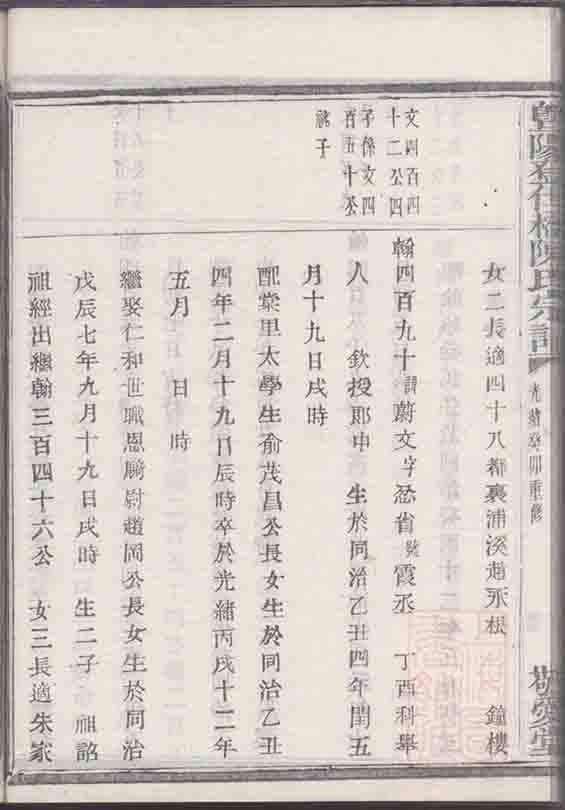 暨陽￼橋陳氏宗譜
光緒癸卯重修
敬愛堂
女二長適四十八都裏浦溪趙永松 鐘樓
文四百四
十二公四
子係文四
百五十公
祧子
翰四百九十諱蔚文字芯省號霞丞 丁酉科舉
人 欽授郎中 生於同治乙丑四年閏五
月十九日戌時
配棠里太學生俞茂昌公長女生於同治乙丑
四年二月十九日辰時卒於光緒丙戌十二年
五月 日 時
繼娶仁和世職恩騎尉趙岡公長女生於同治
戊辰七年九月十九日戌時 生二子 祖詒
祖經出繼翰三百四十六公 女三長適朱家